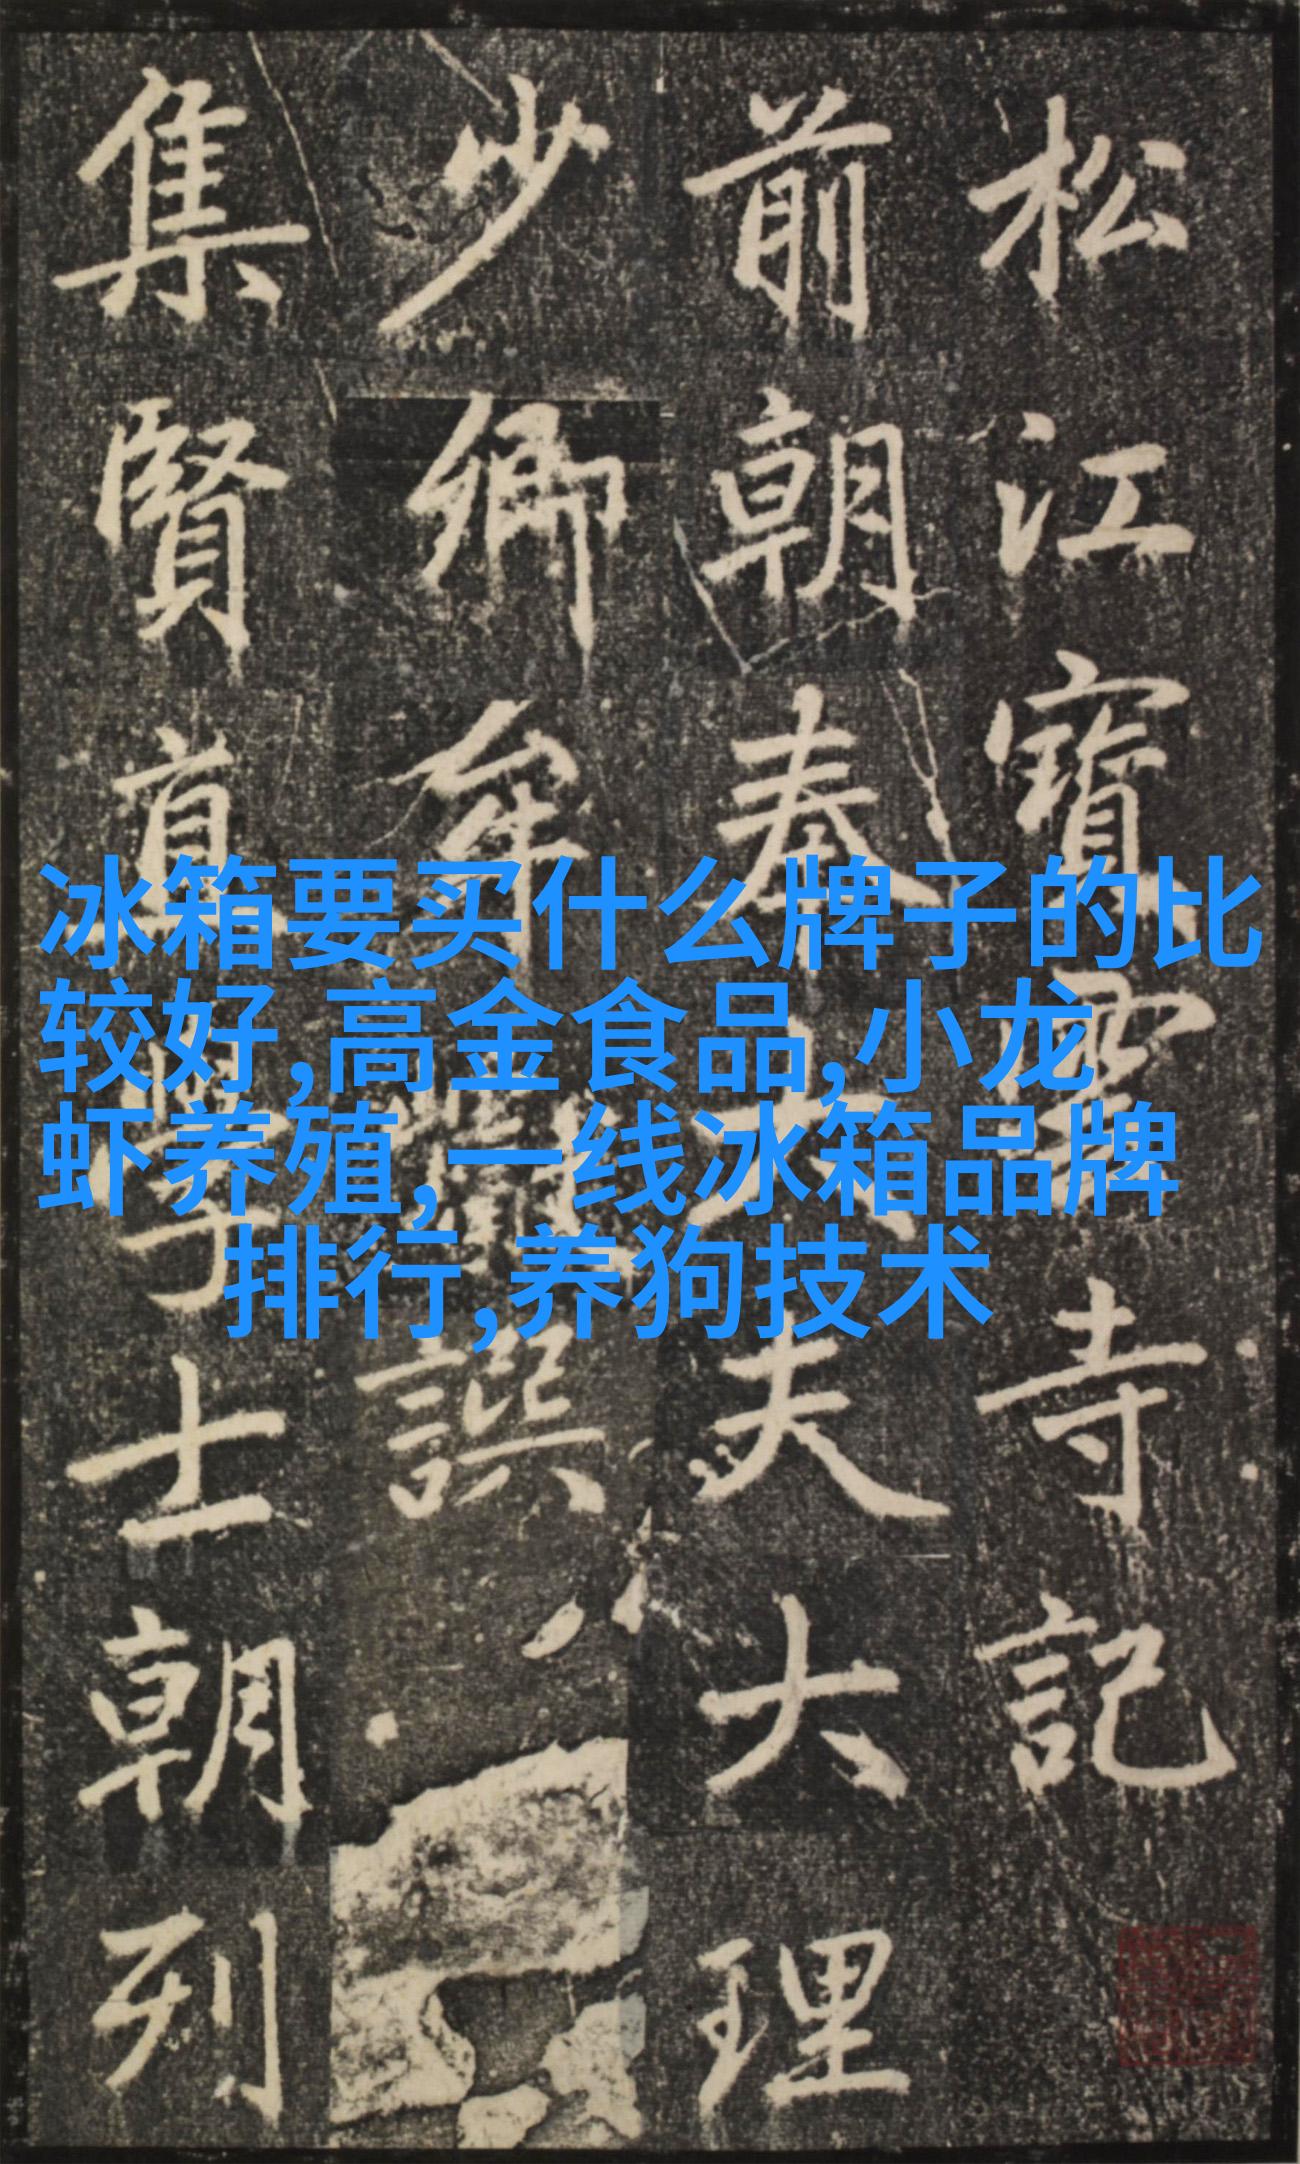 松江寶雲寺記
前朝奉大夫大理
少卿牟巘譔
集賢直學士朝列
冰箱要买什么牌子的比
较好,高金食品,小龙
虾养殖,一线冰箱品牌
排行,养狗技术